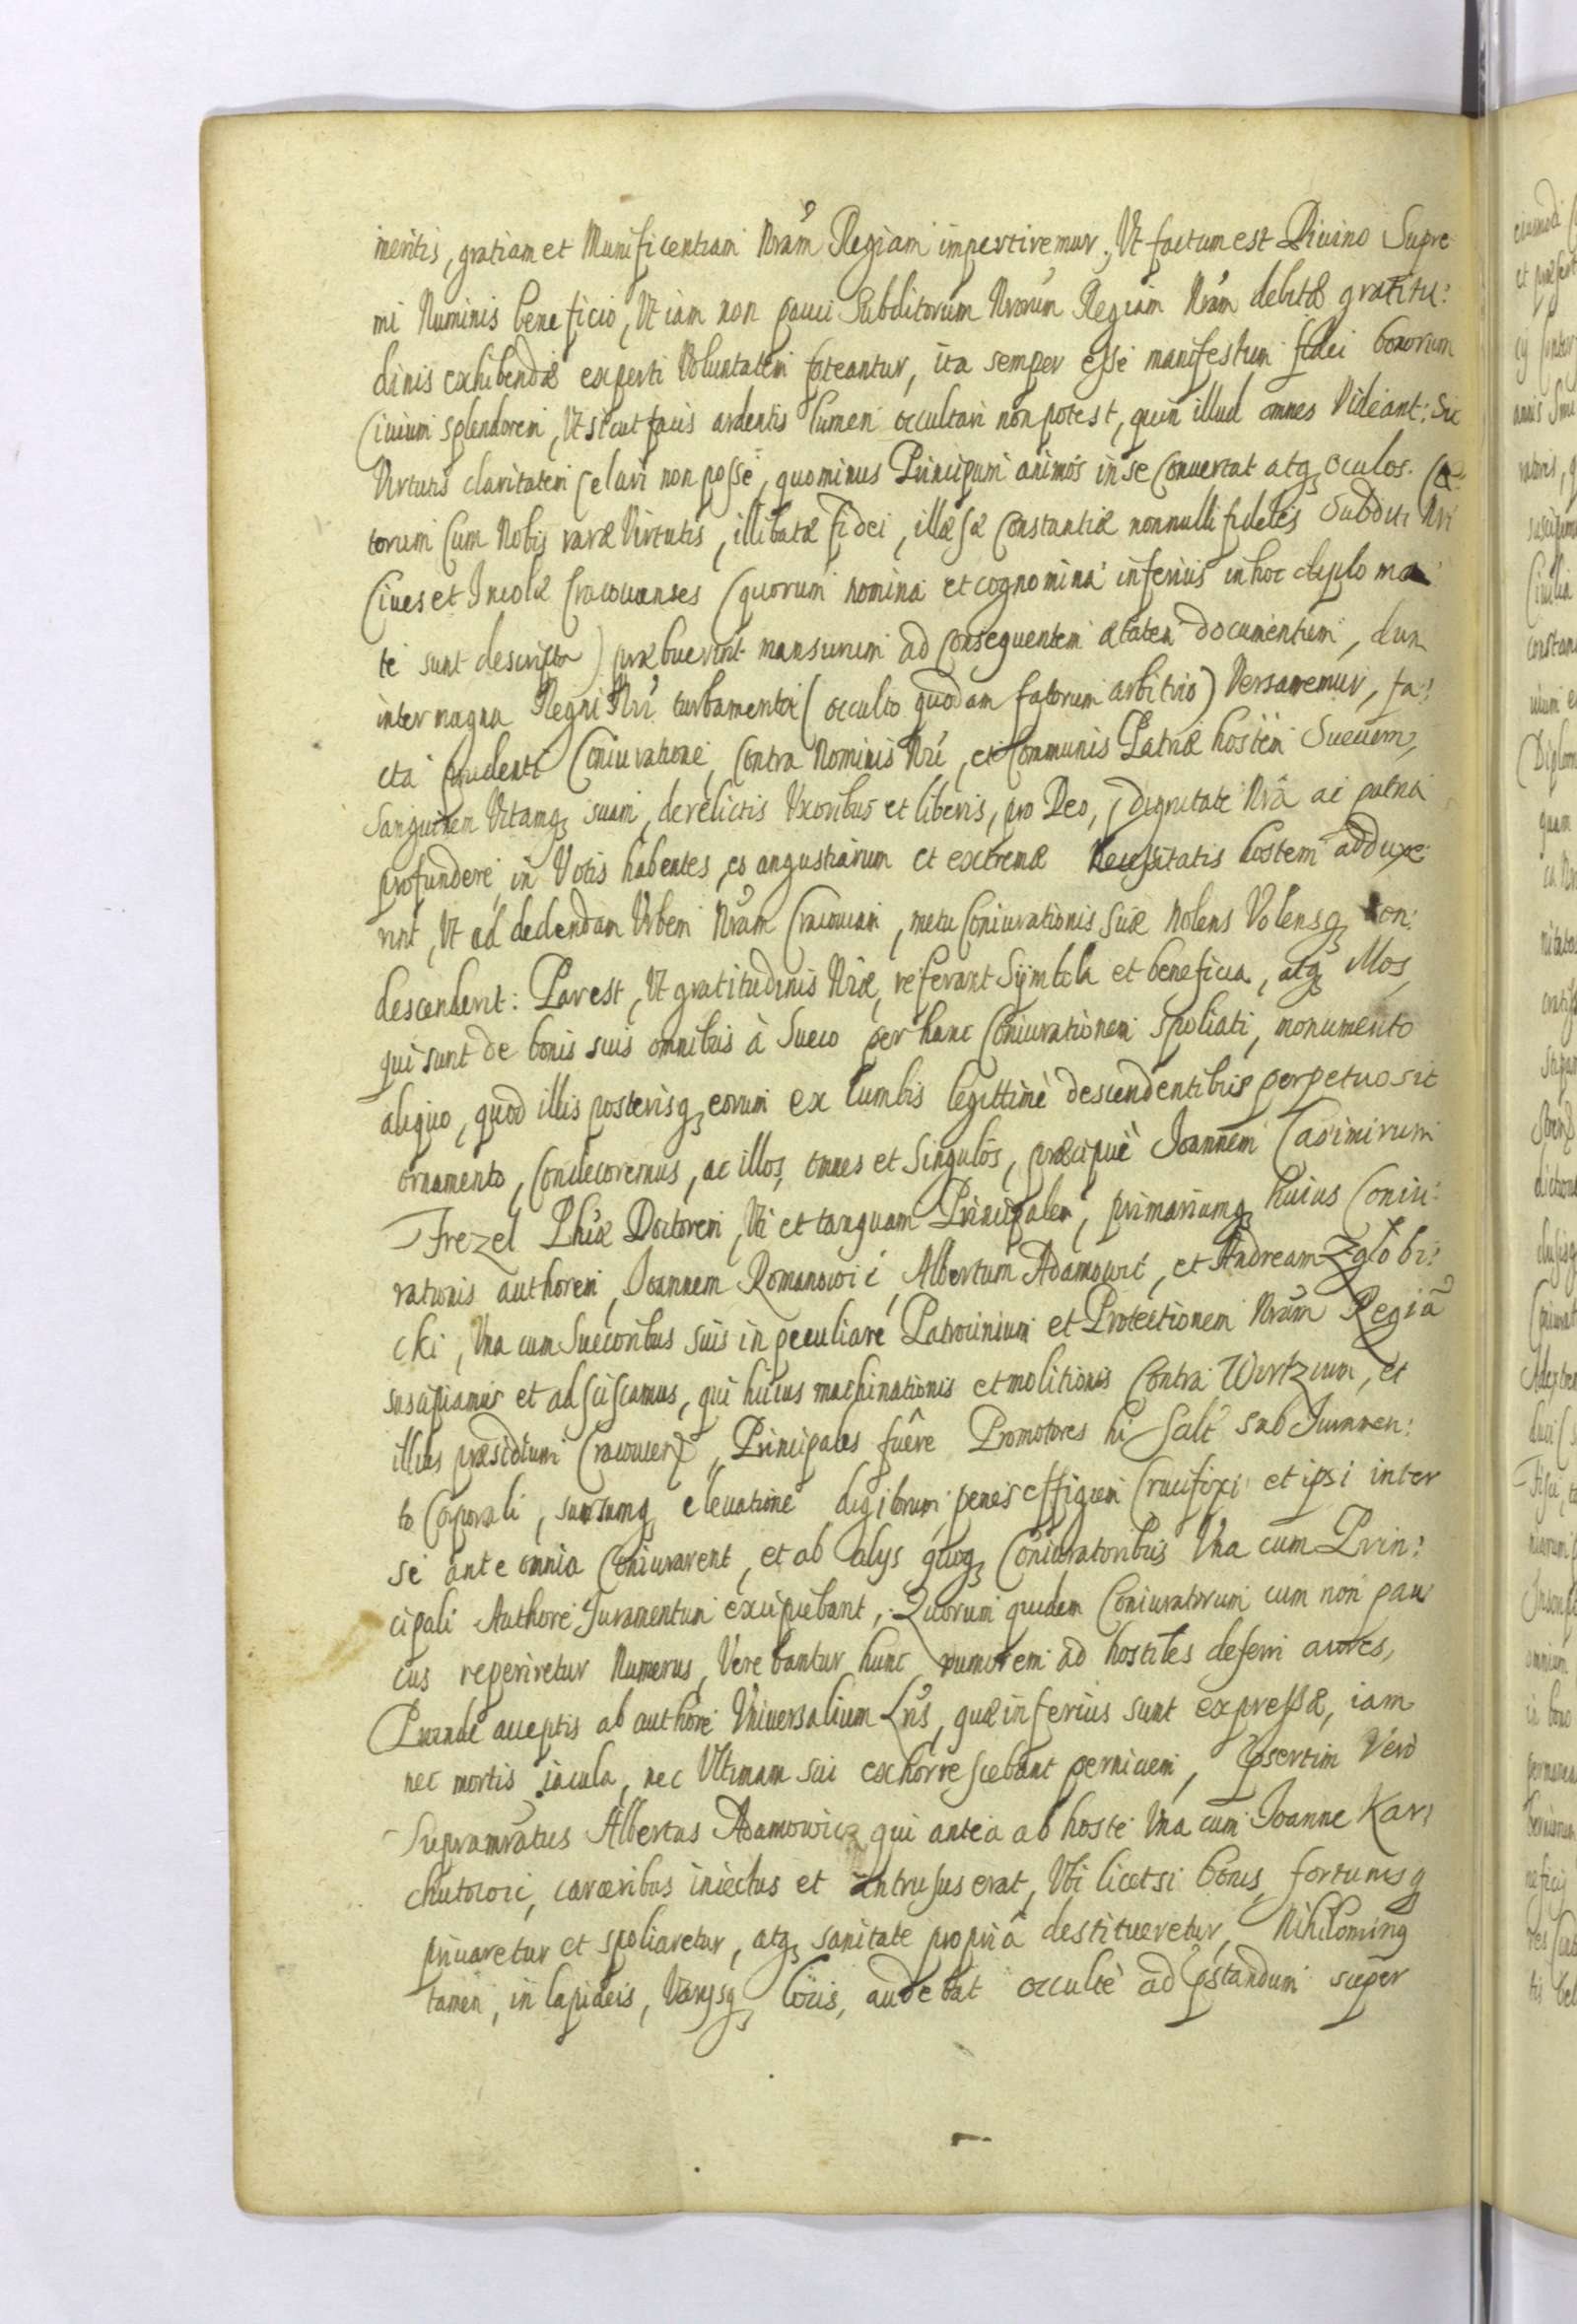 meritis, gratiam et Munificentiam Nrām Regiam impertiremur. Ut factum est Divino Supre
mi Numinis beneficio, Ut iam non pauci Subditorum Nrorum Regiam Nrām debitæ gratitu:
dinis exhibendæ experti Voluntatem fateantur, ita semper esse manifestum fidei bonorum
Civium splendorem, Ut sicut facis ardentis lumen occultari non potest, quin illud omnes Videant: Sic
Virtutis claritatem celari non posse, quominus Principum animos in se Convertat atq oculos. Cæ
torum Cum Nobis raræ Virtutis, illibatæ fidei, illæsæ Constantiæ nonnulli fideles Subditi Nri
Cives et Incolæ Cracovienses (quorum nomina et cognomina inferius in hoc diploma:
te sunt descripta) præbuerint mansurum ad Consequentem ætatem documentum, dum
inter magna Regni Nri turbamenta (occulto quodam fatorum arbitrio) Versaremur, fa:
cta prudenti Coniuratione, Contra Nominis Nri, et Communis Patriæ hostem Suecum,
Sanguinem Vitamq suam, derelictis Uxoribus et liberis, pro Deo, dignitate Nrā ac patria
profundere in Votis habentes, eo angustiarum et extremæ Necessitatis hostem adduxe:
rint, Ut ad dedendam Urbem Nram Cracoviam, metu Coniurationis suæ Nolens Volensq Con:
descenderit: Par est, Ut gratitudinis Nræ, referant Symbola et beneficia, atq illos,
qui sunt de bonis suis omnibus à Sueco per hanc Coniurationem spoliati, monumento
aliquo, quod illis posterisq eorum ex lumbis legittimè descendentibus perpetuo sit
ornamento, Condecoremus, ac illos, omnes et Singulos, præcipuè Joannem Casimirum
Frezel Phiæ Doctorem, Uti et tanquam Principalem, primariumq huius Coniu:
rationis authorem, Joannem Romanowic, Albertum Adamowic, et Andream Zglobi:
cki, Una cum Succoribus suis in peculiare Patrocinium et Protectionem Nram Regiā
suscipiamus et adsciscamus, qui huius machinationis et molitionis Contra Wirtzium, et
illius præsidium Cracovien, Principales fuêre Promotores hi Scilt sub Juramen:
to Corporali, sursumq elevatione digitorum penes effigiem Crucifixi et ipsi inter
se ante omnia Coniurarent, et ab alys quoq Coniuratoribus Una cum Prin:
cipali Authore Juramentum excipiebant, Quorum quidem Coniuratorum cum non pau
cus reperiretur Numerus, Verebantur hunc rumorem ad hostiles deferri aures,
Proinde acceptis ab authore Universalium Lris, quæ inferius sunt expressæ, iam
nec mortis iacula, nec Ultimam sui exhorrescebant perniciem, Psertim Verò
Supramratus Albertus Adamowicz qui antea ab hoste Una cum Joanne Kar
chutowic, carceribus iniectus et intrusus erat, Ubi licet si bonis, fortunisq
privaretur et spoliaretur, atq sanitate propriâ destitueretur, Nihilominq
tamen, in lapideis, Varysq locis, audebat occultè ad pstandum super